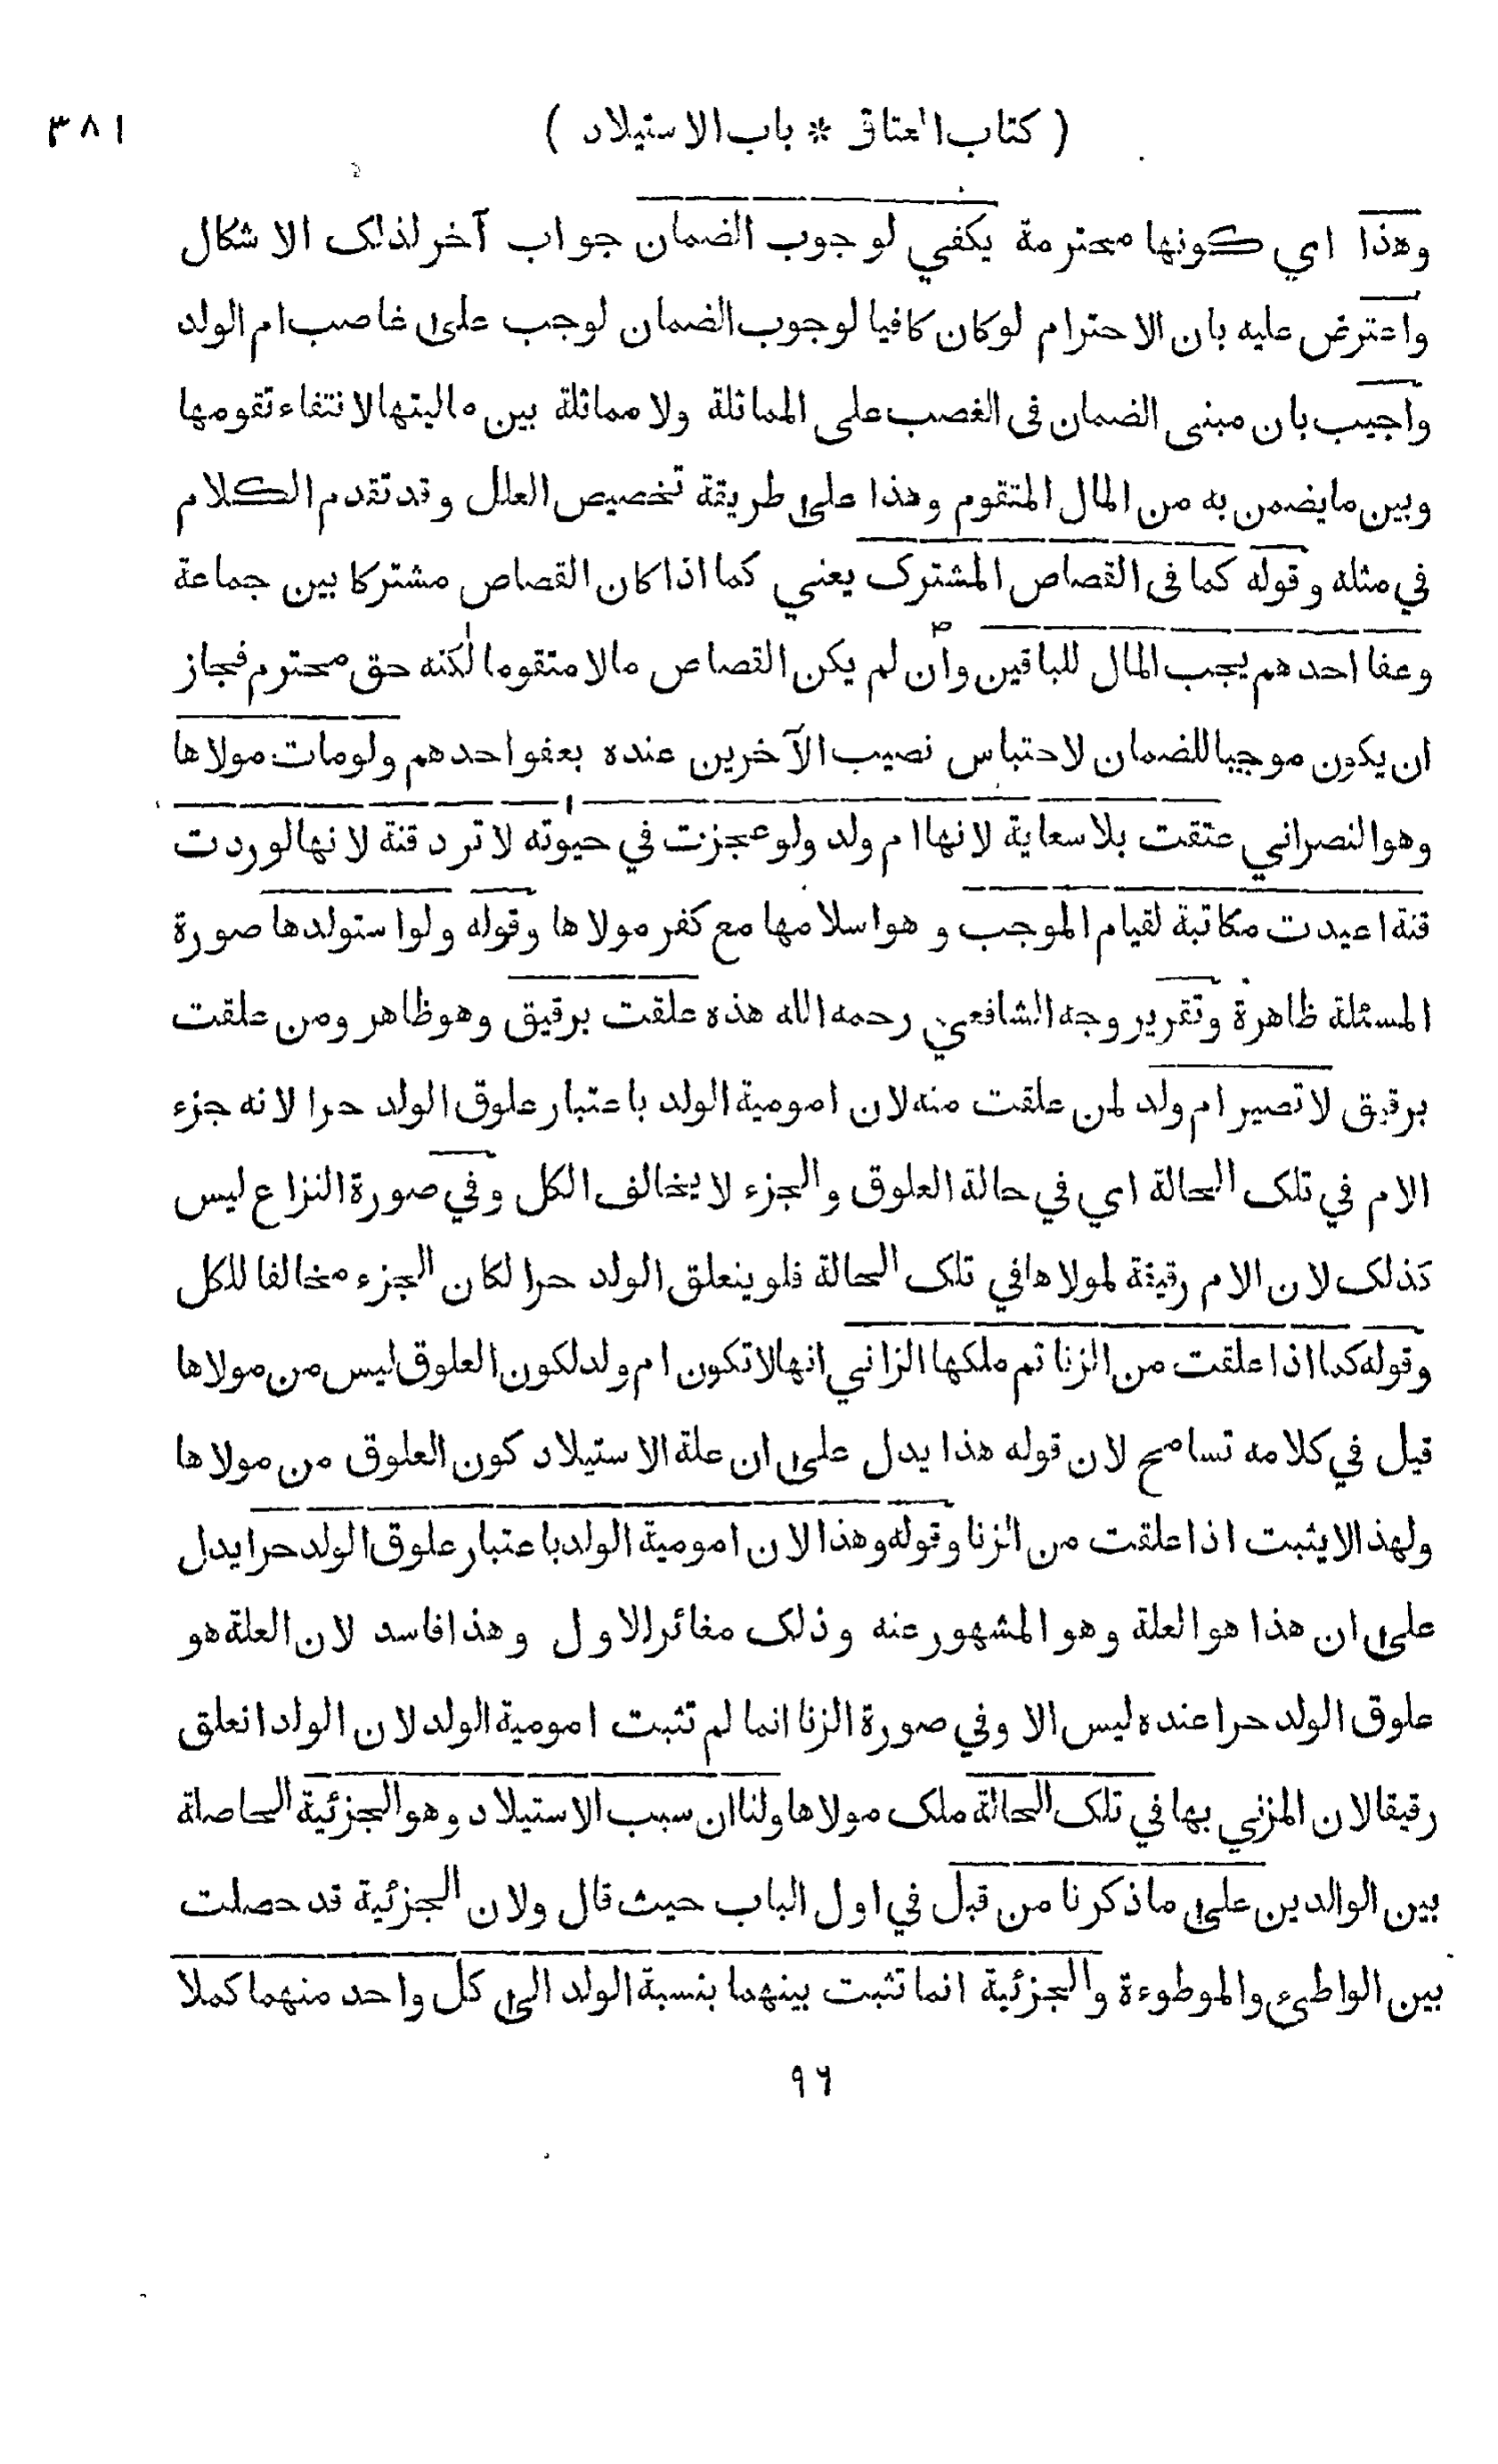 ( كتاب العتاق * باب الاستيلاد ) ٣٨١
وهذا اي كونها محترمة يكفي لوجوب الضمان جواب آخر لذلك الاشكال
واعترض عليه بان الاحترام لوكان كافيا لوجوب الضمان لوجب على غاصب ام الولد
واجيب بان مبنى الضمان فى الغصب على المماثلة ولا مماثلة بين ماليتها لانتفاء تقومها
وبين مايضمن به من المال المتقوم وهذا على طريقة تخصيص العلل وقد تقدم الكلام
في مثله وقوله كما فى القصاص المشترك يعني كما اذا كان القصاص مشتركا بين جماعة
وعفا احدهم يجب المال للباقين وان لم يكن القصاص مالا متقوما لكنه حق محترم فجاز
ان يكون موجبا للضمان لاحتباس نصيب الآخرين عنده بعفو احدهم ولومات مولاها
وهو النصراني عتقت بلا سعاية لانها ام ولد ولو عجزت في حيوته لا ترد قنة لانها لوردت
قنة اعيدت مكاتبة لقيام الموجب وهو اسلامها مع كفر مولاها وقوله ولو استولدها صورة
المسئلة ظاهرة وتقرير وجه الشافعي رحمه الله هذه علقت برقيق وهو ظاهر ومن علقت
برقيق لا تصير ام ولد لمن علقت منه لان امومية الولد باعتبار علوق الولد حرا لانه جزء
الام في تلك الحالة اي في حالة العلوق والجزء لا يخالف الكل وفي صورة النزاع ليس
كذلك لان الام رقيقة لمولاها في تلك الحالة فلو ينعلق الولد حرا لكان الجزء مخالفا للكل
وقوله كما اذا علقت من الزنا ثم ملكها الزاني انها لا تكون ام ولد لكون العلوق ليس من مولاها
قيل في كلامه تسامح لان قوله هذا يدل على ان علة الاستيلاد كون العلوق من مولاها
ولهذا لا يثبت اذا علقت من الزنا وقوله وهذا لان امومية الولد باعتبار علوق الولد حرا يدل
على ان هذا هو العلة وهو المشهور عنه وذلك مغائر للاول وهذا فاسد لان العلة هو
علوق الولد حرا عنده ليس الا وفي صورة الزنا انما لم تثبت امومية الولد لان الولد انعلق
رقيقا لان المزني بها في تلك الحالة ملك مولاها ولنا ان سبب الاستيلاد وهو الجزئية الحاصلة
بين الوالدين على ما ذكرنا من قبل في اول الباب حيث قال ولان الجزئية قد حصلت
بين الواطيء والموطوءة والجزئية انما تثبت بينهما بنسبة الولد الى كل واحد منهما كملا
٩٦